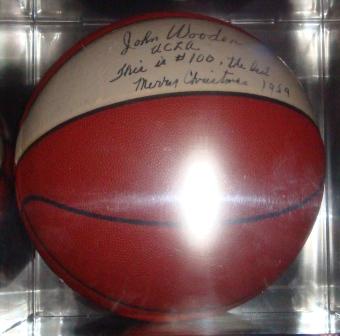 John Wooden
UCLA
This is #100, the best
Merry Christmas 1959